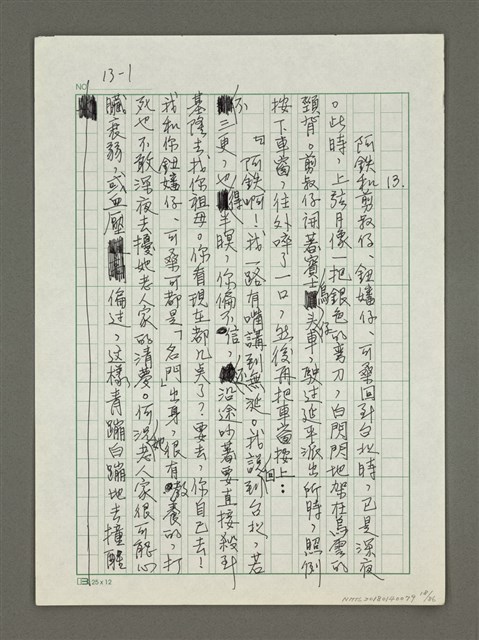 13-1
NO.
13.
阿鉄和剪叔仔、鈕嬸仔、可桑回到台北時,已是深夜
。此時,上弦月像一把銀色的彎刀,白閃閃地架在烏雲的
頸背。剪叔仔開著賓士烏仔头車,駛过延平派出所時,照例
按下車窗,往外啐了一口,然後再把車窗按上:
「阿鉄啊!我一路有嘴講到無涎。我說回到台北,若
不三更,也得半暝,你偏不信,还沿途吵著要直接殺到
基隆去找你祖母。你看現在都几点了?要去,你自己去!
我和你鈕嬸仔、可桑可都是「名門」出身,很有教養的,打
死也不敢深夜去擾她老人家的清夢。何況她老人家很可能心
臟衰弱,或血壓偏过,这樣青蹦白蹦地去撞醒
25×12
NMTL20180140079